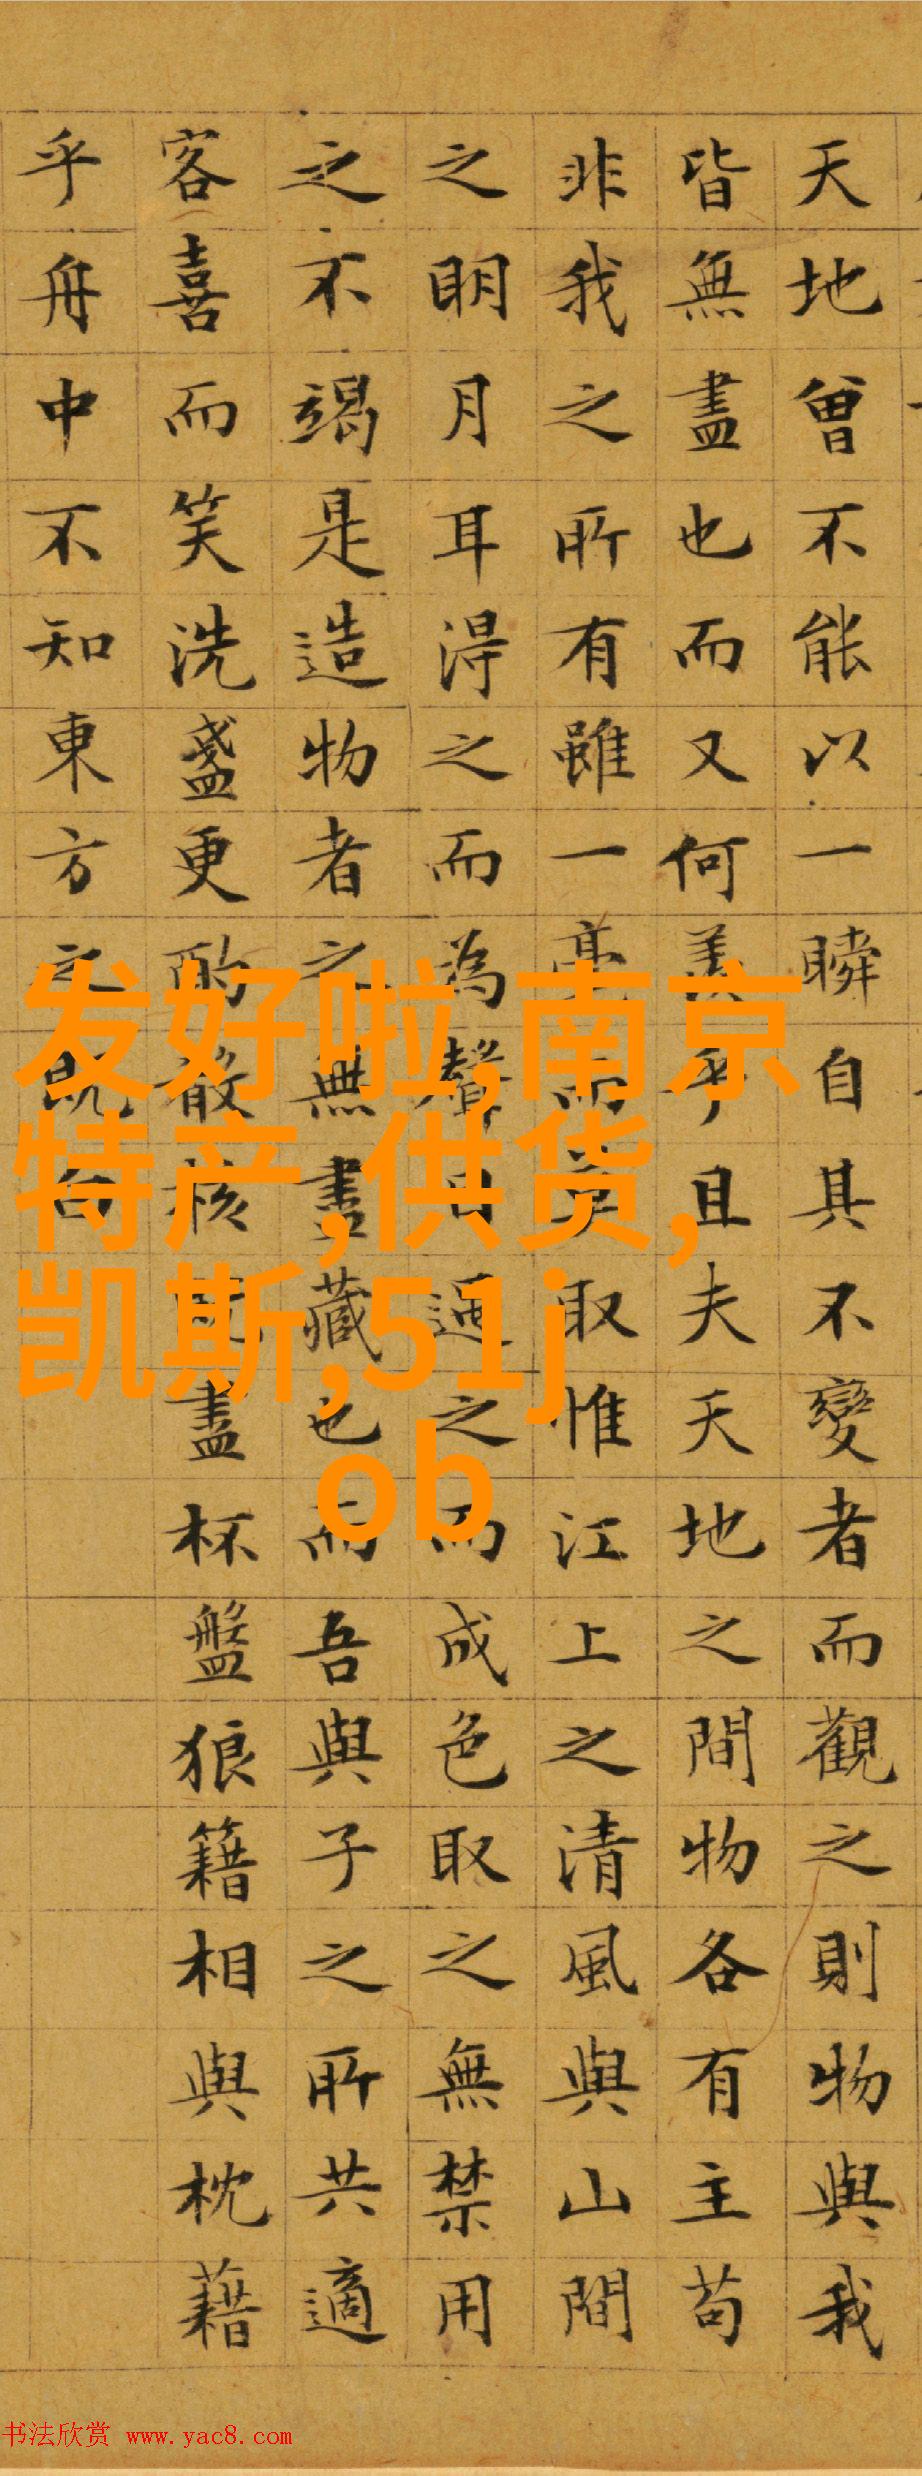 天地曾不能以一瞬自具不變者而觀之則物與我
皆無盡也而又何羨乎且夫天地之間物各有主苟
非我之所有雖一毫而莫取惟江上之清風與山間
之明月耳得之而為聲目遇之而成色取之無禁用
之不竭是造物者之無盡藏也而吾與子之所共適
客喜而笑洗盞更酌殽核既盡杯盤狼籍相與枕藉
乎舟中不知東方之既白
发好啦,南京
特产,供货,
凯斯,51j
ob
书法欣赏 www.yac8.com